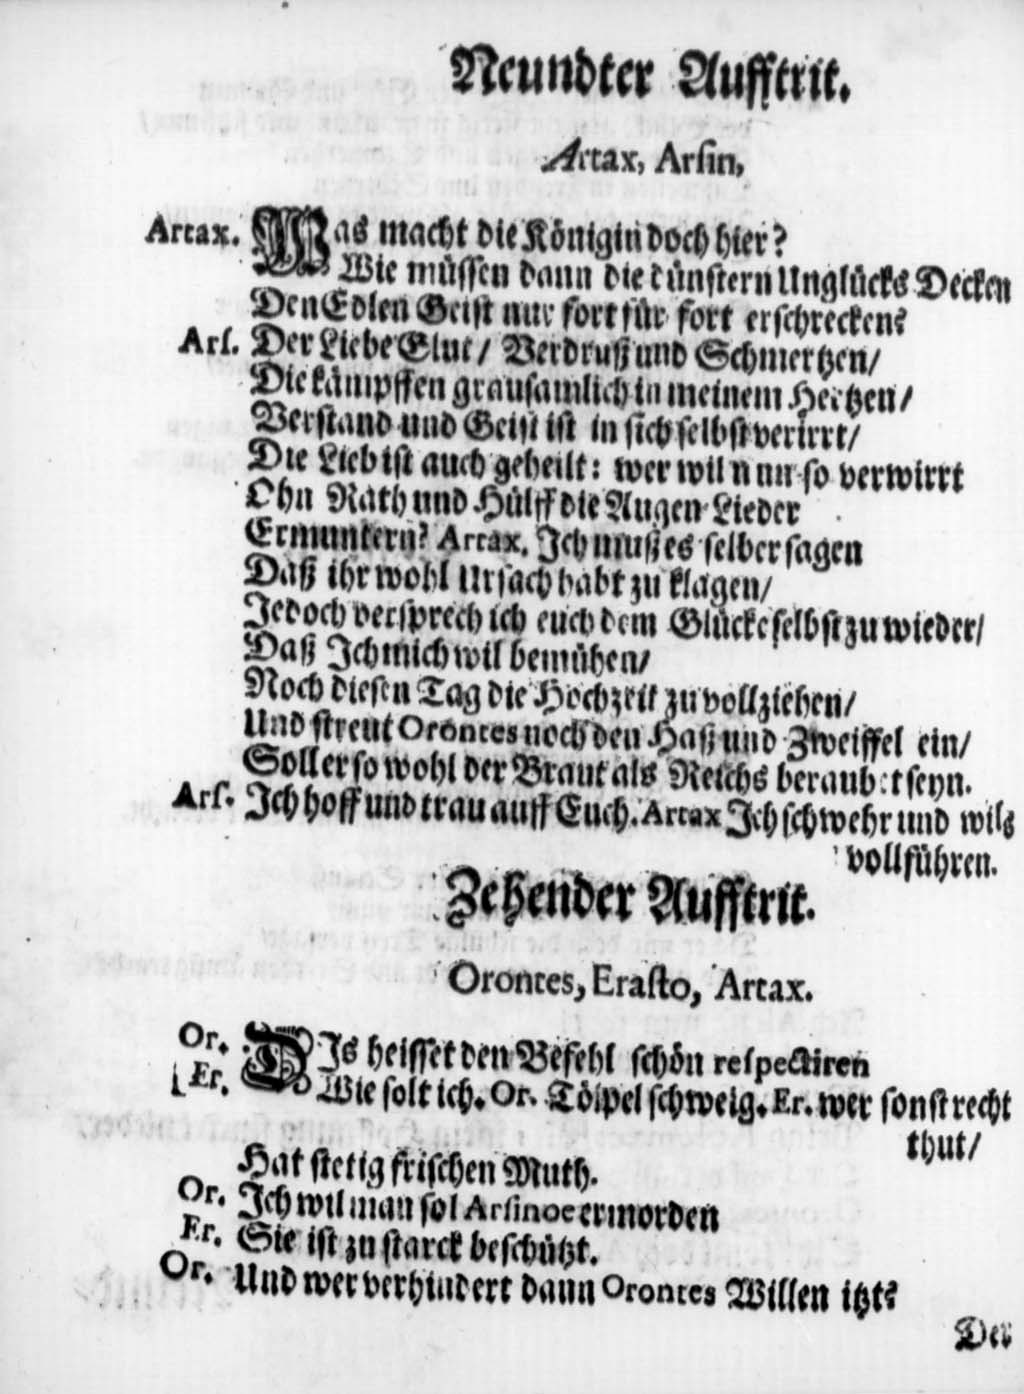 Neundter Aufftrit.
Artax, Arsin,
Artax. Was macht die Königin doch hier?
Wie müssen dann die dünstern Unglücks Decken
Den Edlen Geist nur fort für fort erschrecken?
Ars. Der Liebe Glut / Verdruß und Schmertzen /
Die kämpffen grausamlich in meinem Hertzen /
Verstand und Geist ist in sich selbst verirrt /
Die Lieb ist auch geheilt: wer wil nun so verwirrt
Ohn Rath und Hülff die Augen Lieder
Ermuntern? Artax. Ich muß es selber sagen
Daß ihr wohl Ursach habt zu klagen /
Jedoch versprech ich euch dem Glücke selbst zu wieder /
Daß Ich mich wil bemühen /
Noch diesen Tag die Hochzeit zu vollziehen /
Und streut Orontes noch den Haß und Zweiffel ein /
Soll er so wohl der Braut als Reichs beraubet seyn.
Ars. Ich hoff und trau auff Euch. Artax Ich schwehr und wils
vollführen.
Zehender Aufftrit.
Orontes, Erasto, Artax.
Or. DIs heisset den Befehl schön respectiren
Er. Wie solt ich. Or. Tölpel schweig. Er. wer sonst recht
thut /
Hat stetig frischen Muth.
Or. Ich wil man sol Arsinoe ermorden
Er. Sie ist zu starck beschützt.
Or. Und wer verhindert dann Orontes Willen itzt?
Der